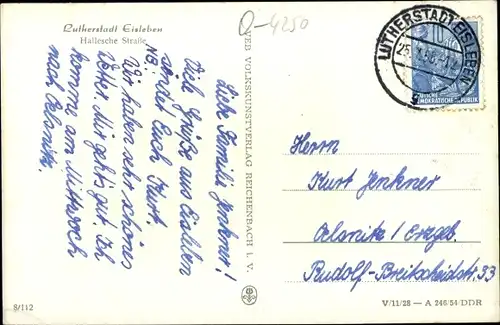 Lutherstadt Eisleben
Hallesche Straße
Q-4250
Liebe Familie Jenkner!
Viele Grüße aus Eisleben
sendet Euch Kurt
NB:
Wir haben sehr schönes
Wetter. Mir geht's gut. Ich
komme am Mittwoch
nach Oelsnitz.
VEB VOLKSKUNSTVERLAG REICHENBACH I. V.
LUTHERSTADT EISLEBEN
10
DEUTSCHE
DEMOKRATISCHE REPUBLIK
Herrn
Kurt Jenkner
Oelsnitz / Erzgeb.
Rudolf-Breitscheidstr. 33
8/112
V/11/28 — A 246/54/DDR